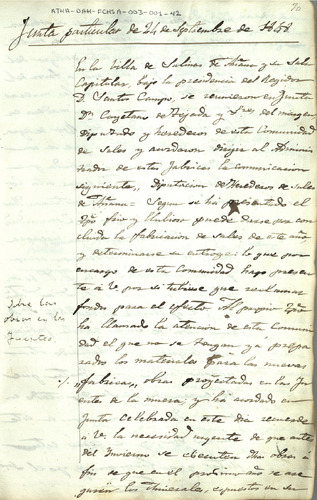 ATHA-DAH-FCHSA-003-001-42
Junta particular de 24 de Septiembre de 1858
En la Villa de Salinas de Añana y su Sala
Capitular, bajo la presidencia del Regidor
D. Santos Campo, se reunieron en Junta
Dn. Cayetano de Tejada y Sres del
Diputando y herederos de esta Comunidad
de Sales y acordaron dirigir al Adminis
trador de estas fabricas la comunicacion
siguiente, Diputacion de Herederos de Sales
de Añana = Segun se ha presentado el
tpo frio y lluvioso puede darse por con
cluida la fabricacion de sales de este año
y determinarse su entroge: lo que por
encargo de esta Comunidad hago presen
te á V. por si tubiese que reclamar
fondos para el efecto. Al propio tpo
ha llamado la atencion de esta Comuni
dad el que no se hayan ya prepa
rado los materiales para las nuevas
fabricas, obras proyectadas en las fu
entes de la muera; y ha acordado en
Junta celebrada en este dia recuerde
á V. la necesidad urgente de que antes
del Invierno se ejecuten dhas obras á
fin de que en el proximo año se ase
guren los
sobre las
obras en las
fuentes